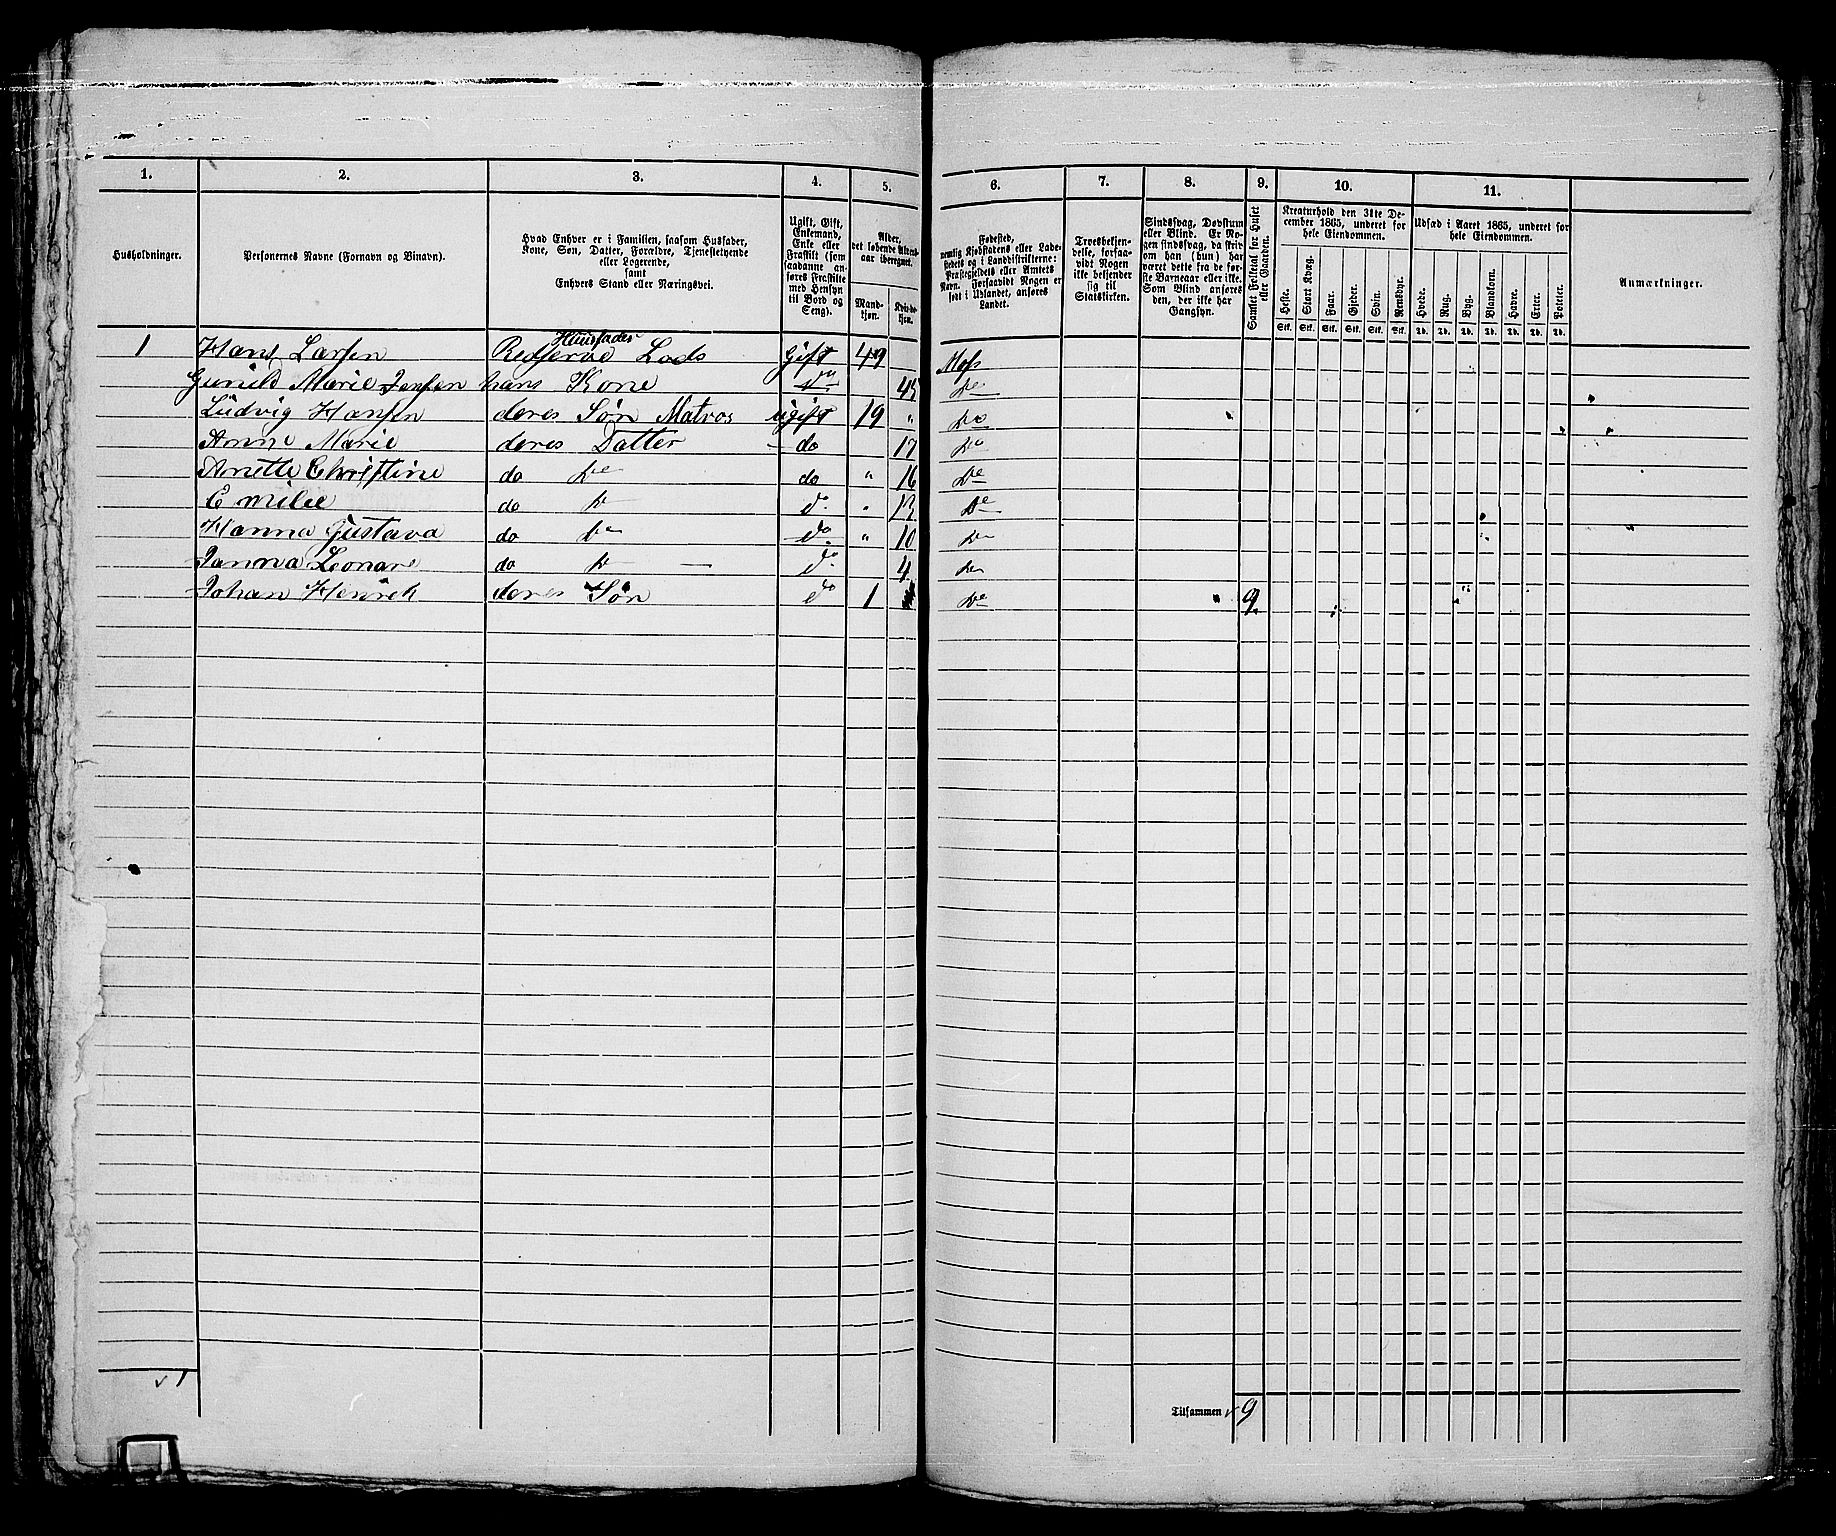 1. 2. 3. 4. 5. 6. 7. 8. 9. 10. 11.
Husholdninger.
Personernes Navne (Fornavn og Binavn).
Hvad Enhver er i Familien, saasom Husfader,
Kone, Søn, Datter, Forældre, Tjenestetyende
eller Logerende,
samt
Enhvers Stand eller Næringsvei.
Ugift, Gift,
Enkemand,
Enke eller
Fraskilt (som
saadanne an-
føres Fraskilte
med Hensyn
til Bord og
Seng).
Alder,
det løbende Alders-
aar iberegnet.
Mand-
kjøn.
Kvinde-
kjøn.
Fødested,
nemlig Kjøbstadens eller Lade-
stedets og i Landdistrikterne:
Præstegjeldets eller Amtets
Navn. Forsaavidt Nogen er
født i Udlandet, anføres
Landet.
Troesbekjen-
delse, forsaa-
vidt Nogen
ikke bekjender
sig til
Statskirken.
Sindssvag, Døvstum
eller Blind. Er No-
gen sindssvag, da skriv
om han (hun) har
været dette fra de før-
ste Barneaar eller ikke.
Som Blind anføres
den, der ikke har
Gangsyn.
Samlet Folketal for Huset
eller Gaarden.
Kreaturhold den 31te De-
cember 1865, underet for
hele Eiendommen.
Heste. Stort Kvæg. Faar. Gjeder. Svin. Rensdyr.
Stk. Stk. Stk. Stk. Stk. Stk.
Udsæd i Aaret 1865, underet for
hele Eiendommen.
Hvede. Rug. Byg. Blandkorn. Havre. Erter. Poteter.
Td. Td. Td. Td. Td. Td. Td.
Anmærkninger.
Huusfader
1 Hans Larsen Reserve Lods Gift 49 Moss
Gunild Marie Jensen hans Kone Do Do
Ludvig Hansen deres Søn Matros ugift 19 " Do
Anne Marie deres Datter do 17 Do
Anette Christine do Do do " 16 Do
Emilie do Do do " Do
Hanna Gustava do Do do " 10 Do
Janna Leonare do Do — do 4 Do
Johan Henrik deres Søn do 1 Do 9
v 1
Tilsammen v 9